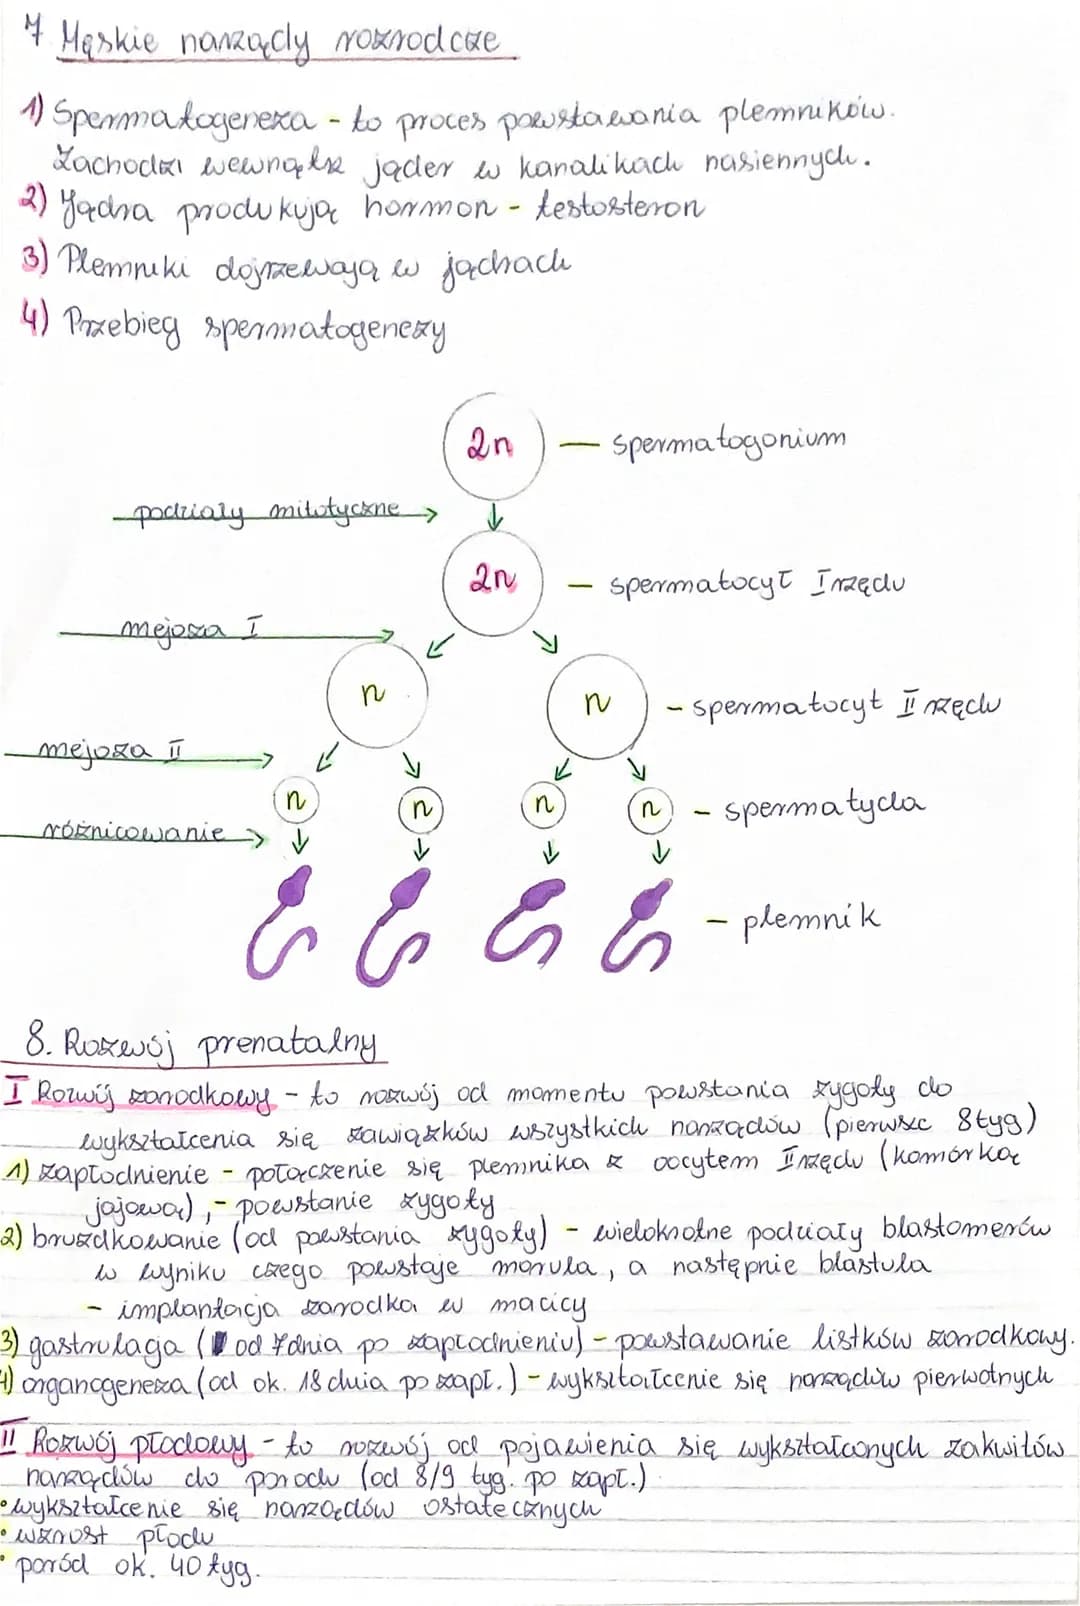 7 Męskie narządy rozrodcze
1) Spermatogeneza - to proces powstawania plemników.
Zachodzi wewnątrz jąder w kanalikach nasiennych.
2) Jądra produkują hormon - testosteron
3) Plemniki dojrzewają w jądrach
4) Przebieg spermatogenezy
2n — spermatogonium
podziały mitotyczne
2n - spermatocyt I rzędu
mejoza I
n n - spermatocyt II rzędu
mejoza II
n n n n - spermatyda
różnicowanie
- plemnik
8. Rozwój prenatalny
I Rozwój zarodkowy - to rozwój od momentu powstania zygoty do
wykształcenia się zawiązków wszystkich narządów (pierwsze 8 tyg)
1) zapłodnienie - połączenie się plemnika z oocytem II rzędu (komórką
jajową), - powstanie zygoty
2) bruzdkowanie (od powstania zygoty) - wielokrotne podziały blastomerów
w wyniku czego powstaje morula, a następnie blastula
- implantacja zarodka w macicy
3) gastrulacja (od 7 dnia po zapłodnieniu) - powstawanie listków zarodkowy.
4) organogeneza (od ok. 18 dnia po zapł.) - wykształcenie się narządów pierwotnych
II Rozwój płodowy - to rozwój od pojawienia się wykształconych zakwitów
narządów do porodu (od 8/9 tyg. po zapł.)
• wykształcenie się narządów ostatecznych
• wzrost płodu
• poród ok. 40 tyg.